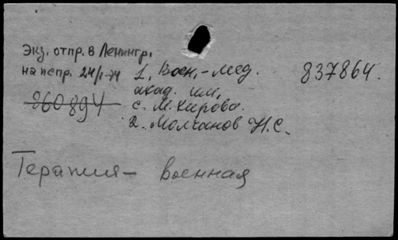 Экз. отпр. в Ленингр.
на испр. 24/I-74 1, Воен.-Мед. 837864.
акад. им.
860894 с. М. Кирова.
2. Молчанов Н.С.
Терапия – военная